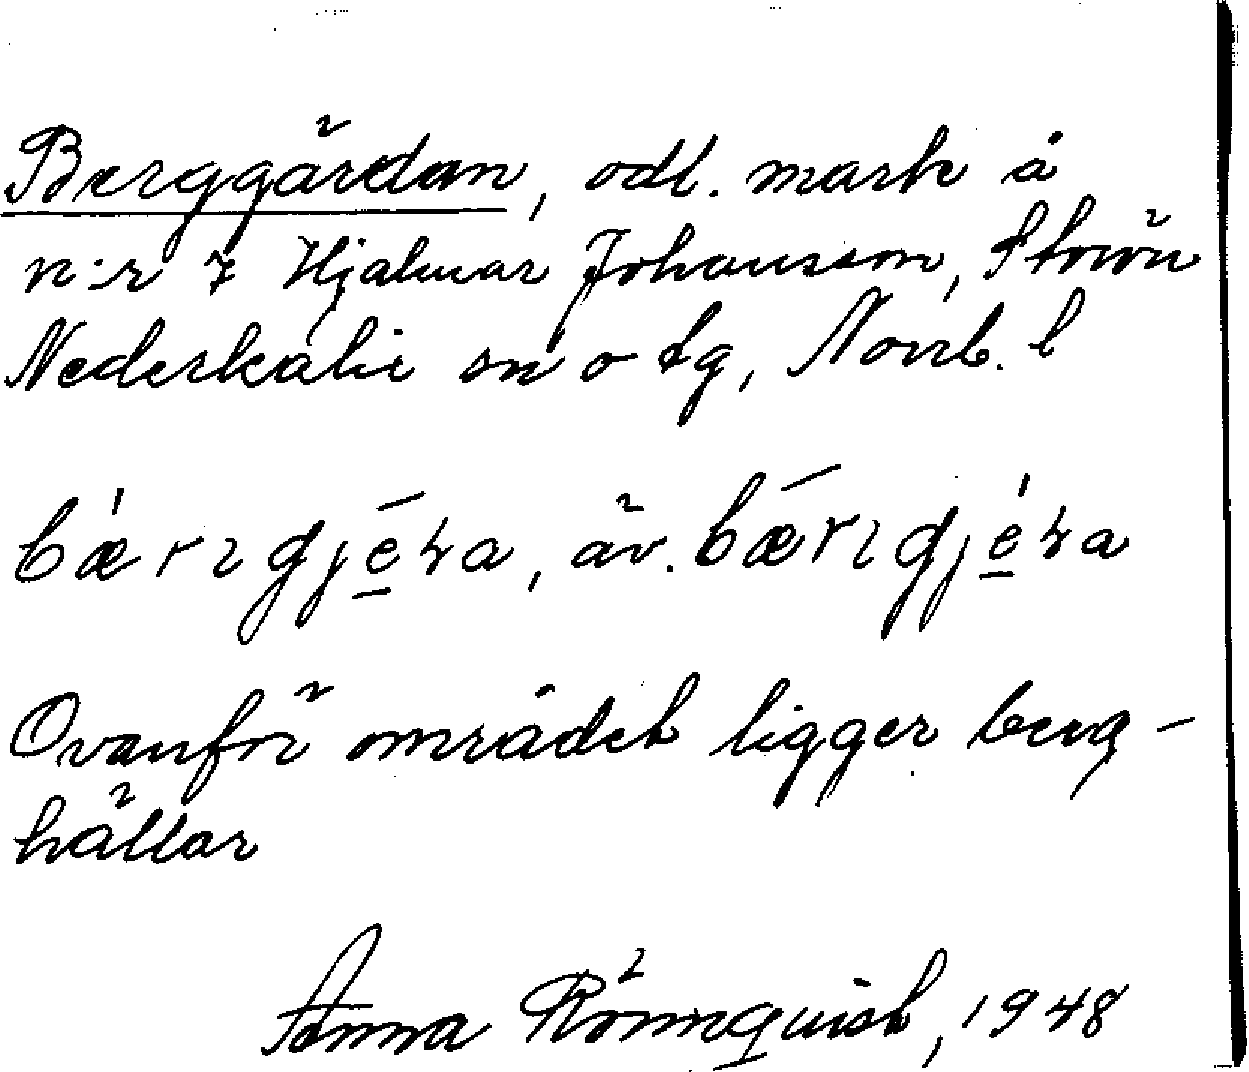 Berggärdan, odl. mark å
n:r 7 Hjalmar Johansson, Storön
Nederkalix sn o tg, Norrb. l
bærɩgjera, äv. bærɩgjera
Ovanför området ligger berg-
hällar
Anna Rönnquist, 1948